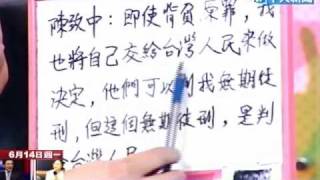 陳致中：即使背負罪，我
也將自己交給台灣人民來做
決定，他們可以判我無期徒
刑，但這個無期徒刑，是判
台灣人民
6月14日 週一